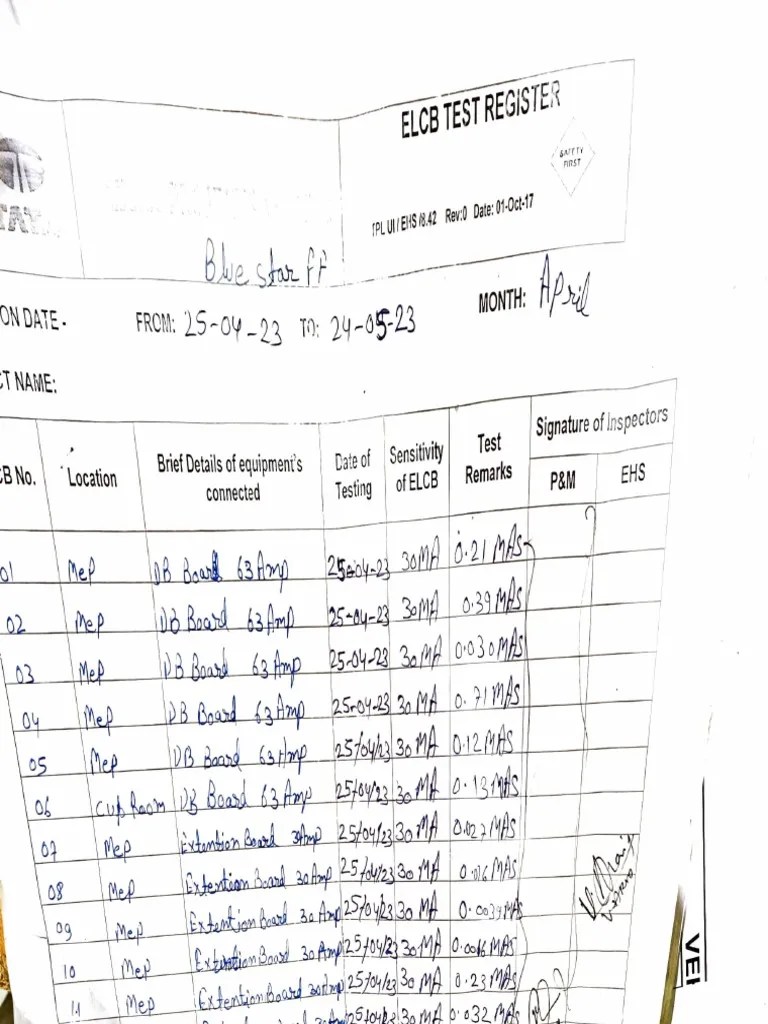 ELCB TEST REGISTER
SAFETY
FIRST
TATA
TPL UI / EHS /8.42 Rev:0 Date: 01-Oct-17
Blue star FF
ON DATE - FROM: 25-04-23 TO: 24-05-23 MONTH: April
CT NAME:
CB No. Location Brief Details of equipment's connected Date of Testing Sensitivity of ELCB Test Remarks Signature of Inspectors
P&M EHS
01 MeP DB Board 63 Amp 25-04-23 30MA 0.21 MAS
02 MeP DB Board 63 Amp 25-04-23 30MA 0.39 MAS
03 MeP DB Board 63 Amp 25-04-23 30MA 0.030 MAS
04 MeP DB Board 63 Amp 25-04-23 30 MA 0.71 MAS
05 MeP DB Board 63 Amp 25/04/23 30 MA 0.12 MAS
06 CUB Room DB Board 63 Amp 25/04/23 30 MA 0.13 MAS
07 MeP Extention Board 30Amp 25/04/23 30 MA 0.027 MAS
08 MeP Extention Board 30 Amp 25/04/23 30 MA MAS
09 MeP Extention Board 30 Amp 25/04/23 30 MA 0.0039 MAS
10 MeP Extention Board 30 Amp 25/04/23 30 MA MAS
11 MeP Extention Board 30 Amp 25/04/23 30 MA 0.23 MAS
25/04/23 30 MA 0.032 MAS
VEI